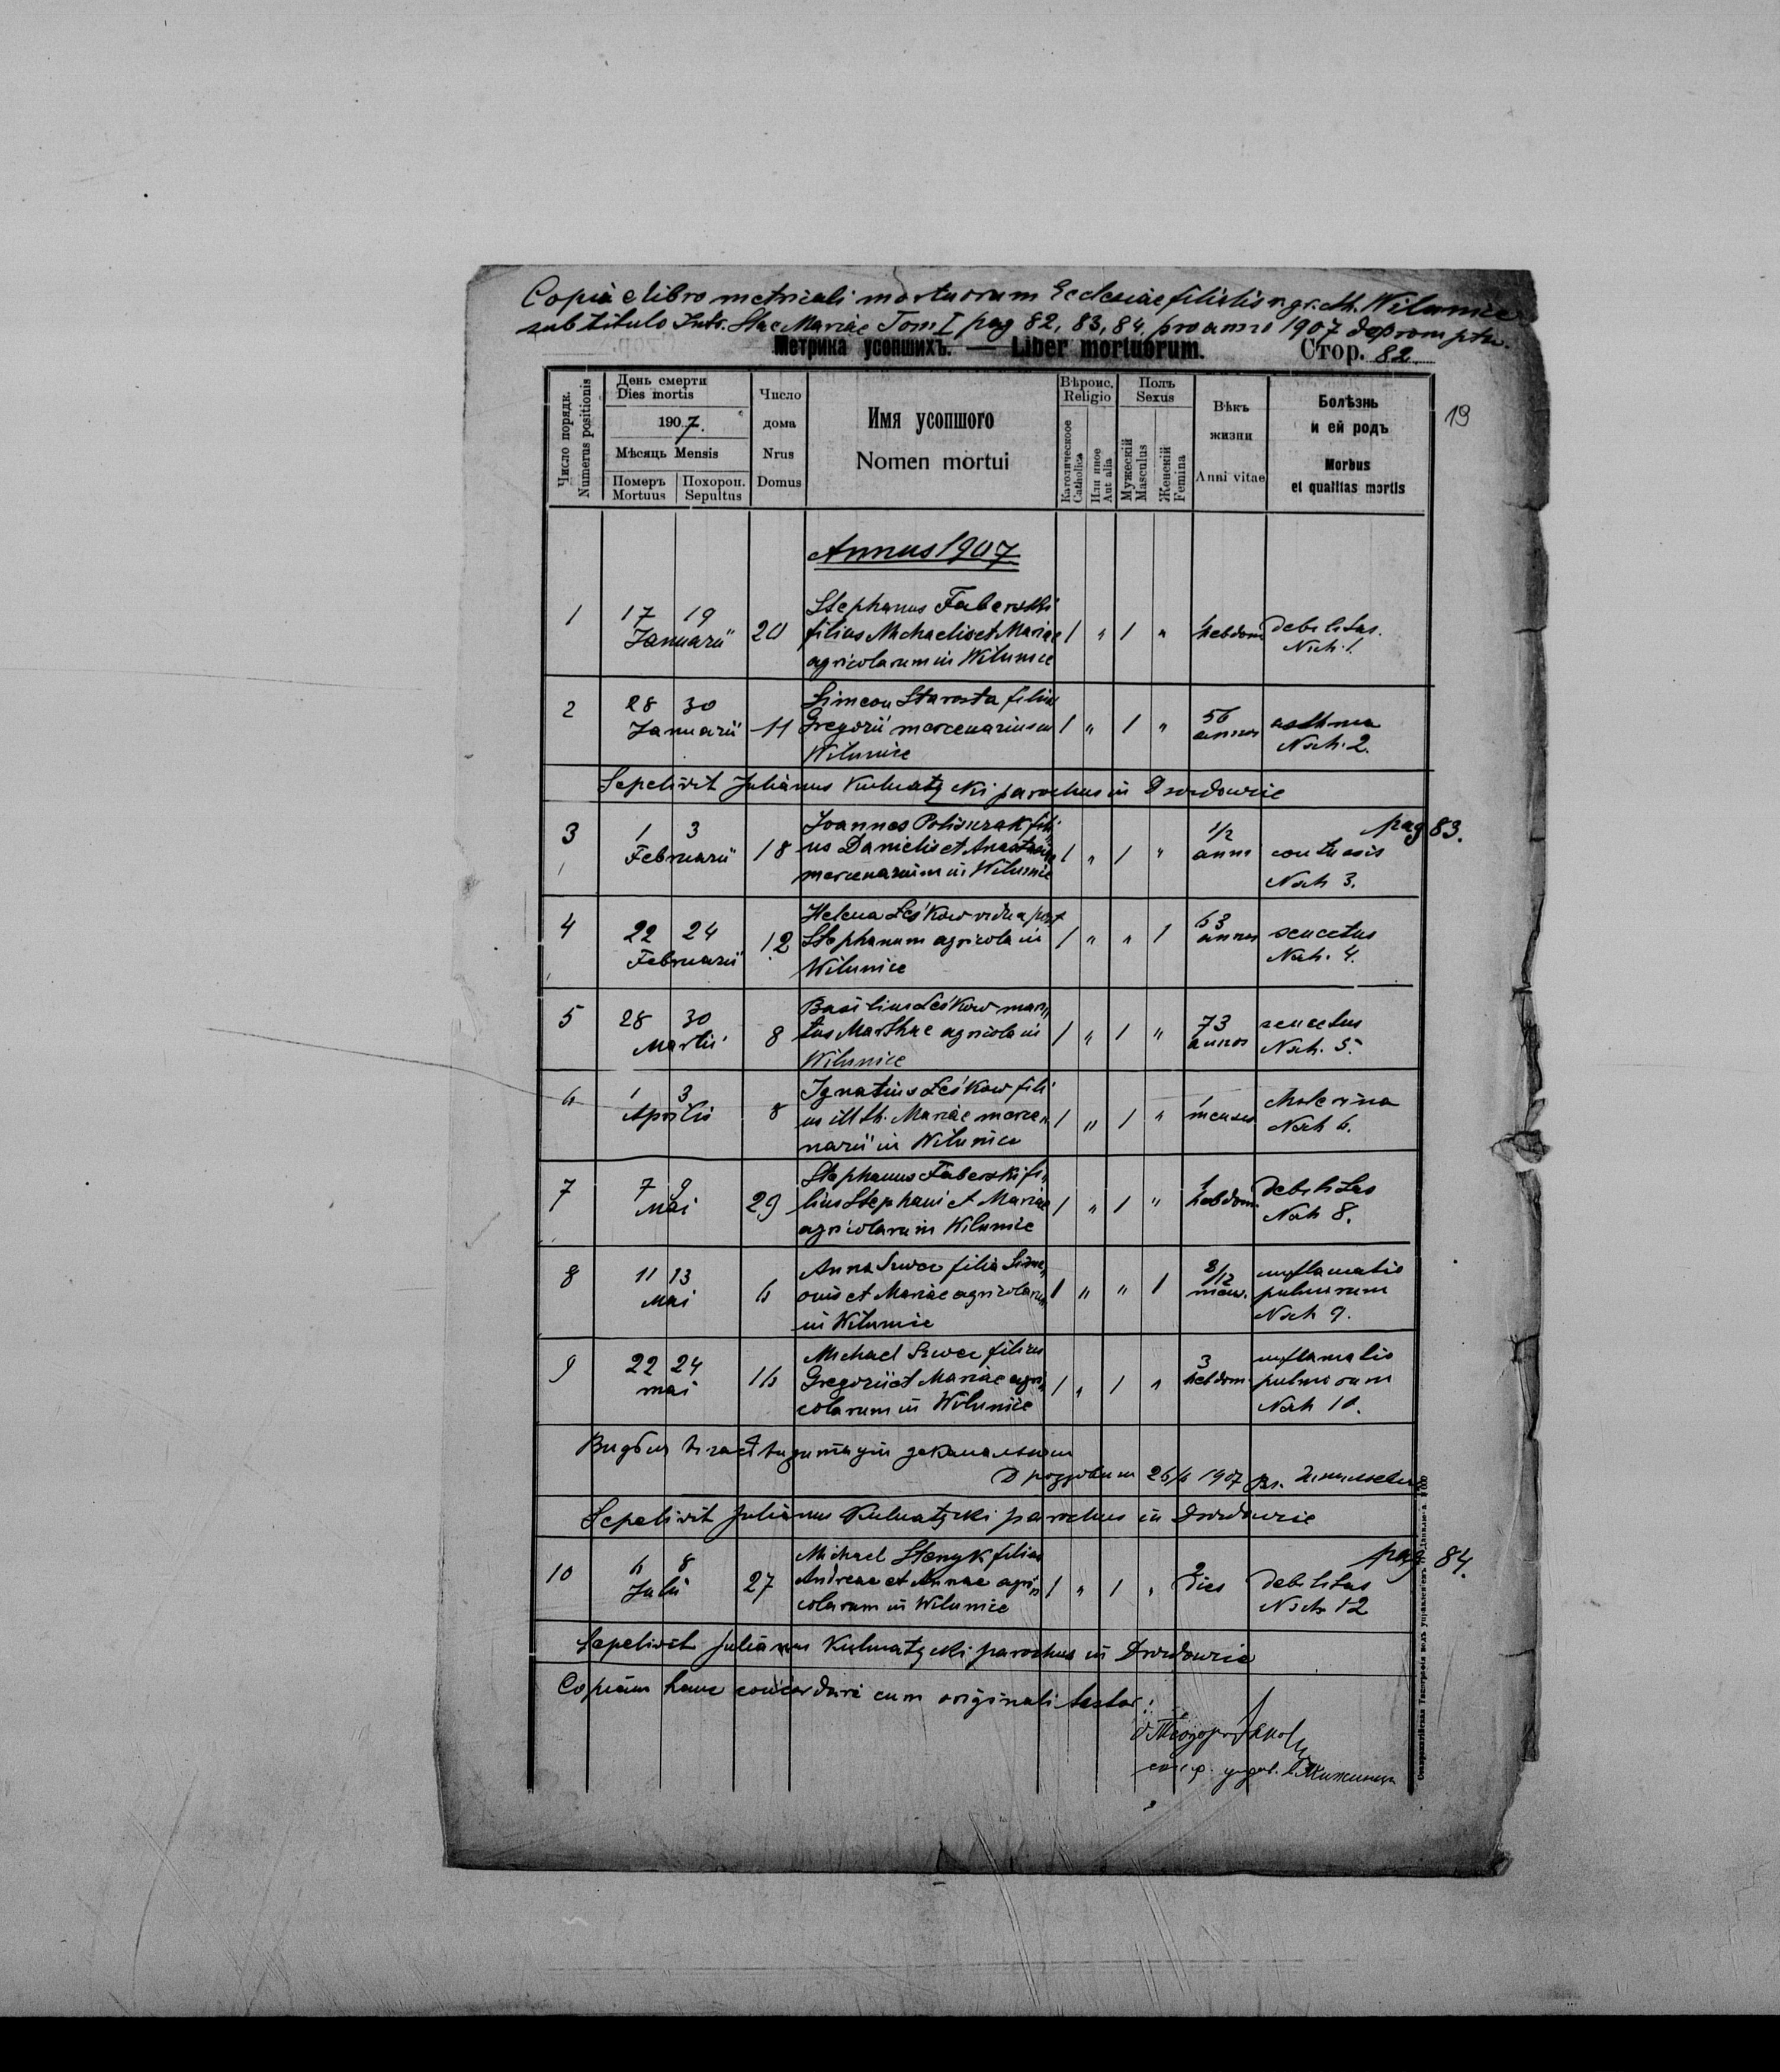 Copia e libro metricali mortuorum Ecclesiae filialis r. gr. cth. Wilunice
sub titulo Intr. Stae Mariae Tom I pag 82, 83, 84. pro anno 1907 deprompta.
Метрика усопшихъ. — Liber mortuorum. Стор. 82
Число порядк. Numerus positionis
День смерти Dies mortis
1907.
Мѣсяць Mensis
Померъ Mortuus
Похорон. Sepultus
Число дома Nrus Domus
Имя усопшого
Nomen mortui
Вѣроис. Religio
Католическое Catholica
Или иное Aut alia
Полъ Sexus
Мужескій Masculus
Женскій Femina
Вѣкъ жизни Anni vitae
Болѣзнь и ей родъ
Morbus et qualitas mortis
19
Annus 1907
Stephanus Faberski
1 17 19 Januarii 20 filius Michaelis et Mariae 1 " 1 " 1 hebdom debilitas.
agricolarum in Wilunice Nch. 1.
Simeon Starosta filius
2 28 30 Januarii 11 Gregorii mercenarius in 1 " 1 " 56 annor asthma
Wilunice Nch. 2.
Sepelivit Julianus Kulmatycki parochus in Drozdowice
pag 83.
Joannes Polisurak fili
3 1 3 Februarii 18 us Danielis et Anastasiae 1 " 1 " 1/2 anni
mercenarium in Wilunice Nch 3.
Helena Leśkow vidua post
4 22 24 Februarii 12 Stephanum agricola in 1 " " 1 63 annor senectus
Wilunice Nch. 4.
Basilius Leśkow mari„
5 28 30 Martii 8 tus Marthae agricola in 1 " 1 " 73 annor senectus
Wilunice Nch. 5.
Ignatius Leśkow fili
6 1 3 Aprilis 8 us illth. Mariae merce„ 1 " 1 " 1 mensis cholerina
narii in Wilunice Nch 6.
Stephanus Faberski fi„
7 7 9 Mai 29 lius Stephani et Mariae 1 " 1 " 1 hebdom. debilitas
agricolarum in Wilunice Nch 8.
Anna Szwec filia Sime„
8 11 13 Mai 6 onis et Mariae agricolarum 1 " " 1 8/12 mens. inflamatio pulmorum
in Wilunice Nch 9.
Michael Szwec filius
9 22 24 mai 16 Gregorii et Mariae agri„ 1 " 1 " 3 hebdom. inflamatio pulmorum
colarum in Wilunice Nch 10.
26/6 1907
Sepelivit Julianus Kulmatycki parochus in Drozdowice
pag 84.
Michael Stenyk filius
10 6 8 Julii 27 Andreae et Annae agri„ 1 " 1 " 2 dies debilitas
colarum in Wilunice Nch 12
Sepelivit Julianus Kulmatycki parochus in Drozdowice
Copiam hanc concordare cum originali testor: